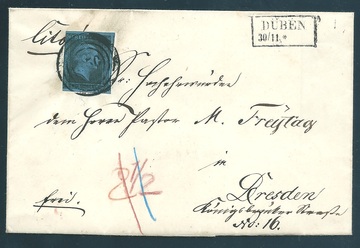 DÜBEN
30/11 *
Cito
Sr: Hochehrwürden
dem Herrn Pastor M. Freytag
in
frei.
Dresden
Königsbrücker Strasse
No: 16.